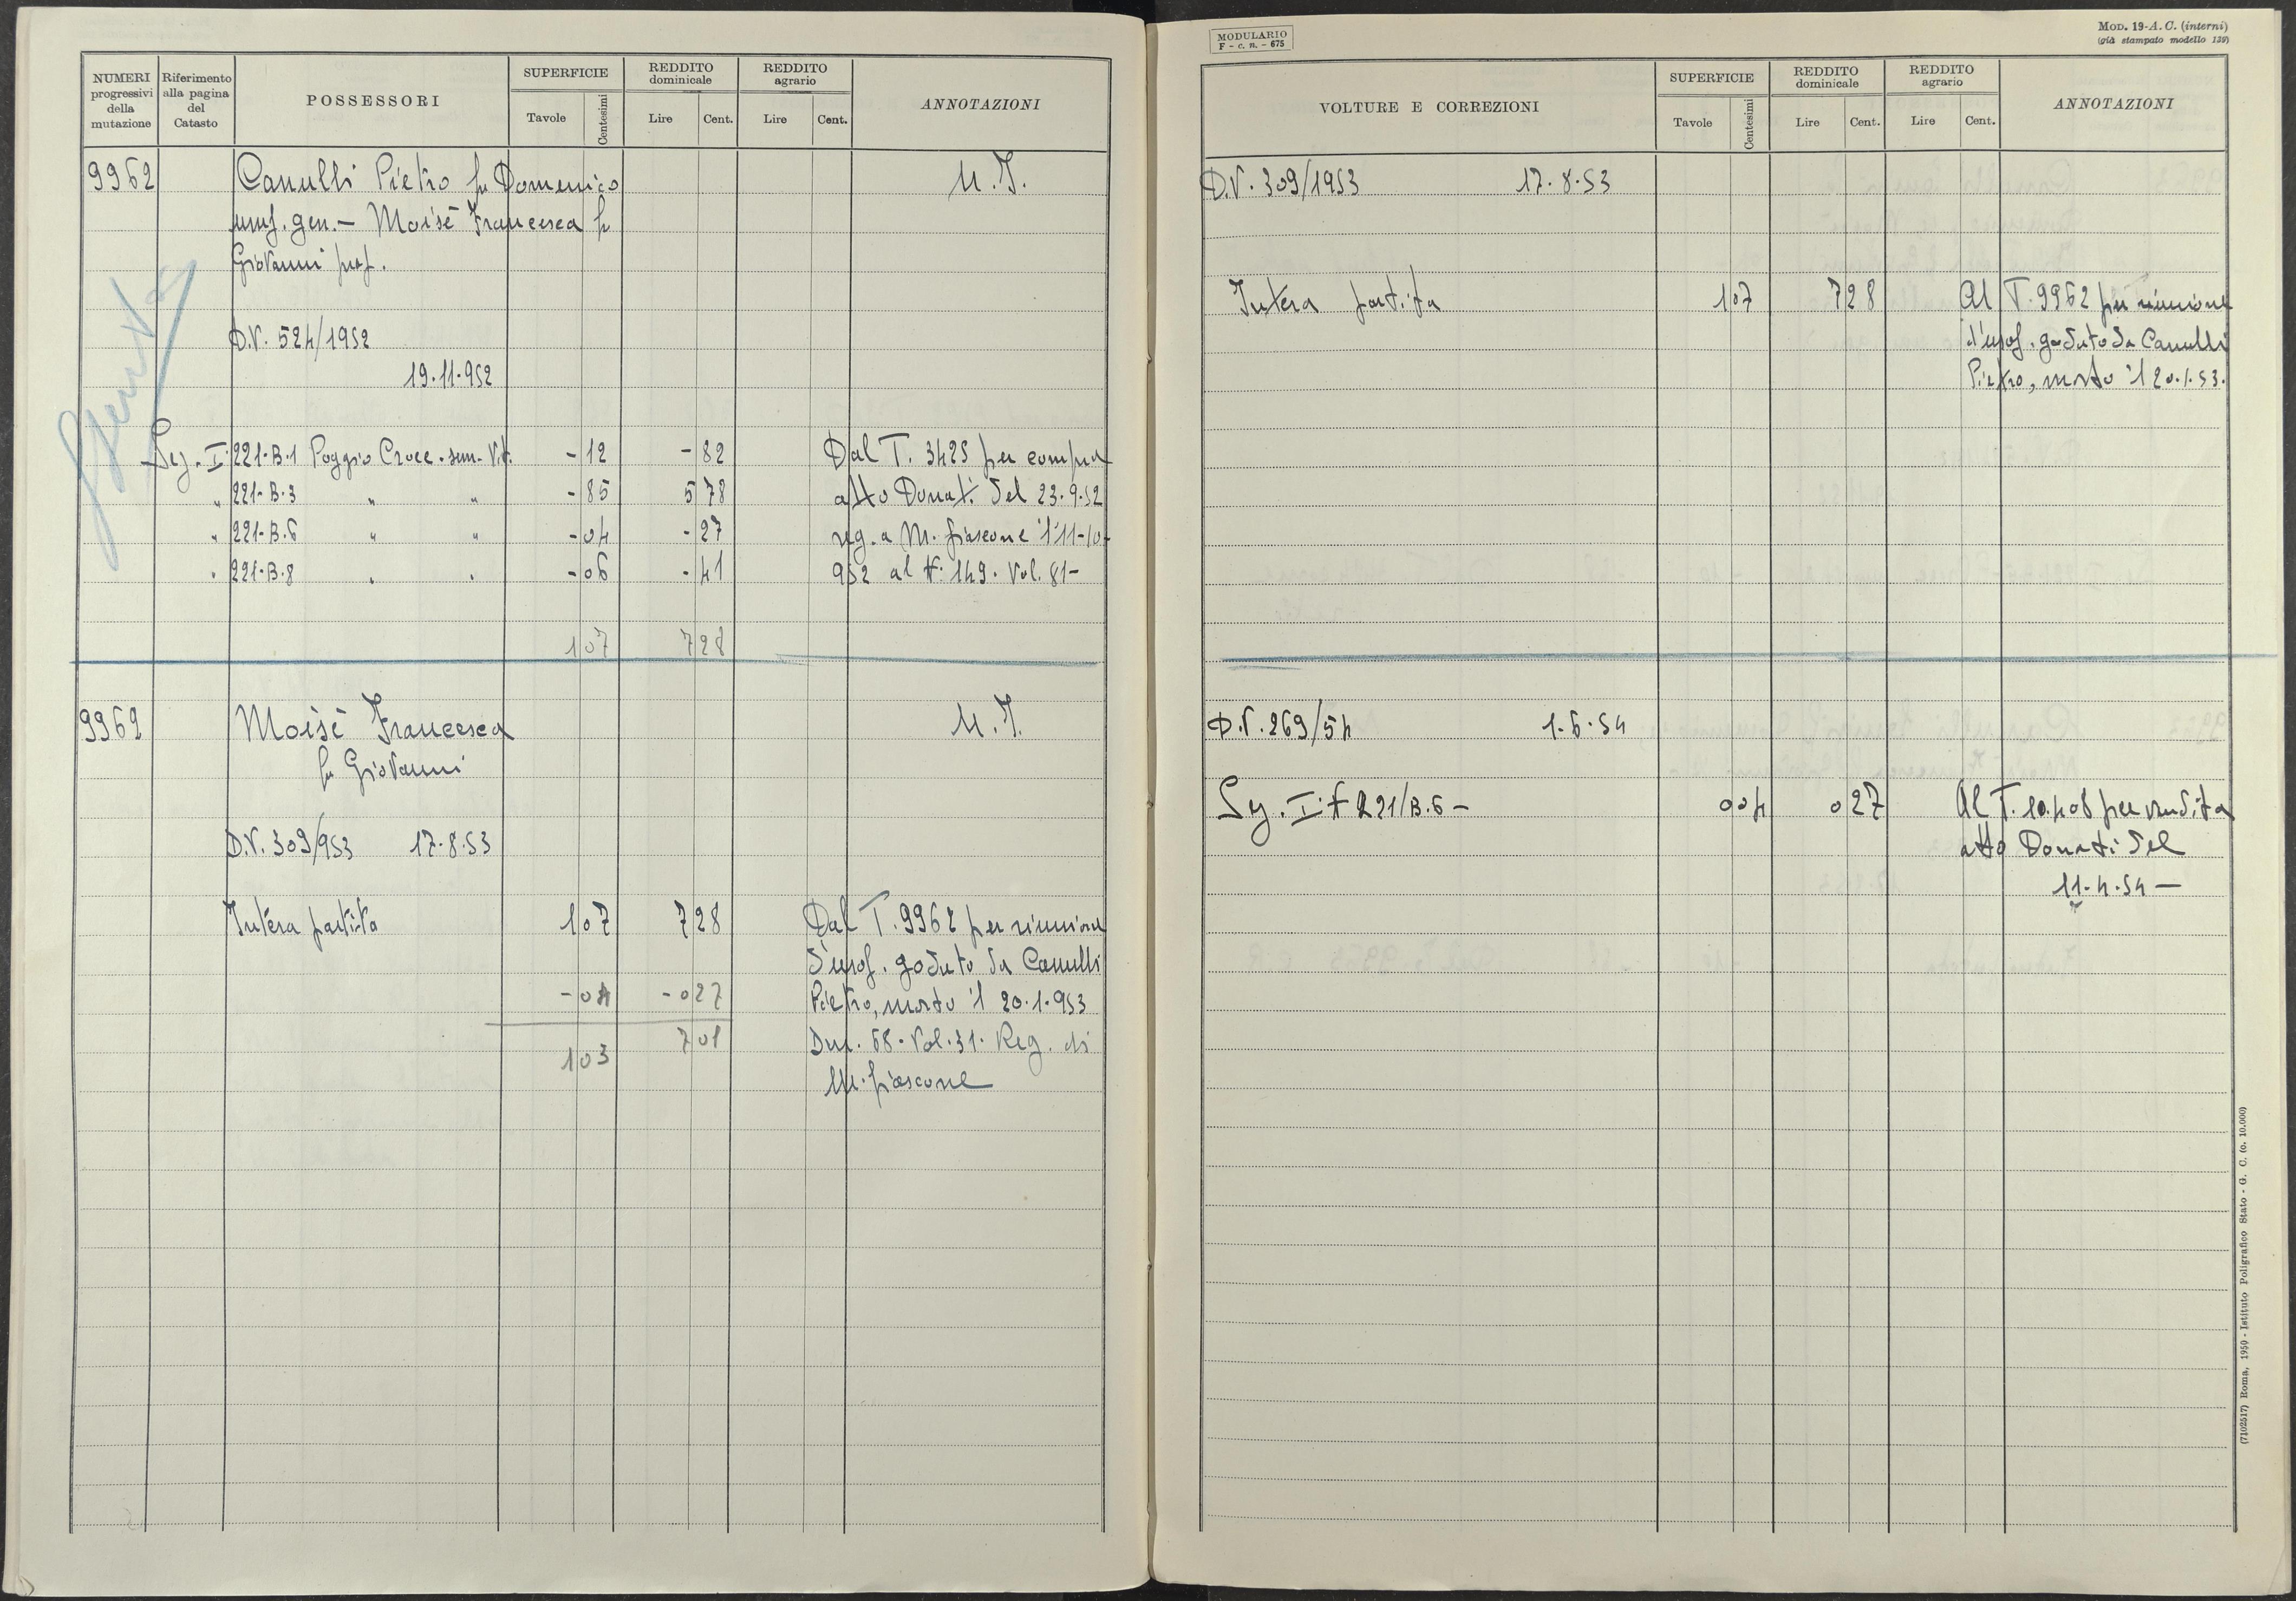 NUMERI progressivi della mutazione
Riferimento alla pagina del Catasto
POSSESSORI
SUPERFICIE
Tavole
Centesimi
REDDITO dominicale
Lire
Cent.
REDDITO agrario
Lire
Cent.
ANNOTAZIONI
9962
Canulli Pietro fu Domenico
usuf. gen. - Moisè Francesca fu
Giovanni prop.
U.T.
D.V. 524/1952
19.11.952
Sez. I 221-B.1 Poggio Croce - sem. Vit. -12 -82 Dal T. 3425 per compra
" 221-B.3 " " -85 5 78 atto Donati del 23.9.52
" 221-B.6 " " -04 -27 reg. a M. fiascone l'11-10-
" 221-B.8 " " -06 -41 952 al N. 149. Vol. 81-
1 07 7 28
9962
Moisè Francesca
fu Giovanni
U.T.
D.V. 309/953 17.8.53
Intera partita 1 07 7 28 Dal T. 9962 per riunione
d'usof. goduto da Canulli
-04 -027 Pietro, morto il 20.1.953
1 03 7 01 Den. 68. Vol. 31. Reg. di
M. fiascone
MODULARIO
F - c. n. - 675
MOD. 19-A. C. (interni)
(già stampato modello 129)
VOLTURE E CORREZIONI
SUPERFICIE
Tavole
Centesimi
REDDITO dominicale
Lire
Cent.
REDDITO agrario
Lire
Cent.
ANNOTAZIONI
D.V. 309/1953 17.8.53
Intera partita 1 07 7 28 Al T. 9962 per riunione
d'usof. goduto da Canulli
Pietro, morto il 20.1.53.
D.V. 269/54 1.6.54
Sez. I: f 221/B.6 - 0 04 0 27 Al T. 10.408 per vendita
atto Donati del
11.4.54 -
(7102517) Roma, 1950 - Istituto Poligrafico Stato - G. C. (c. 10.000)